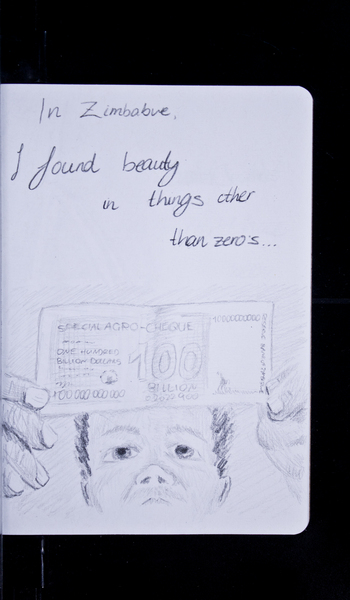 In Zimbabwe,
I found beauty
in things other
than zero's...
SPECIAL AGRO-CHEQUE
ONE HUNDRED
BILLION DOLLARS
100 000 000 000
100
BILLION